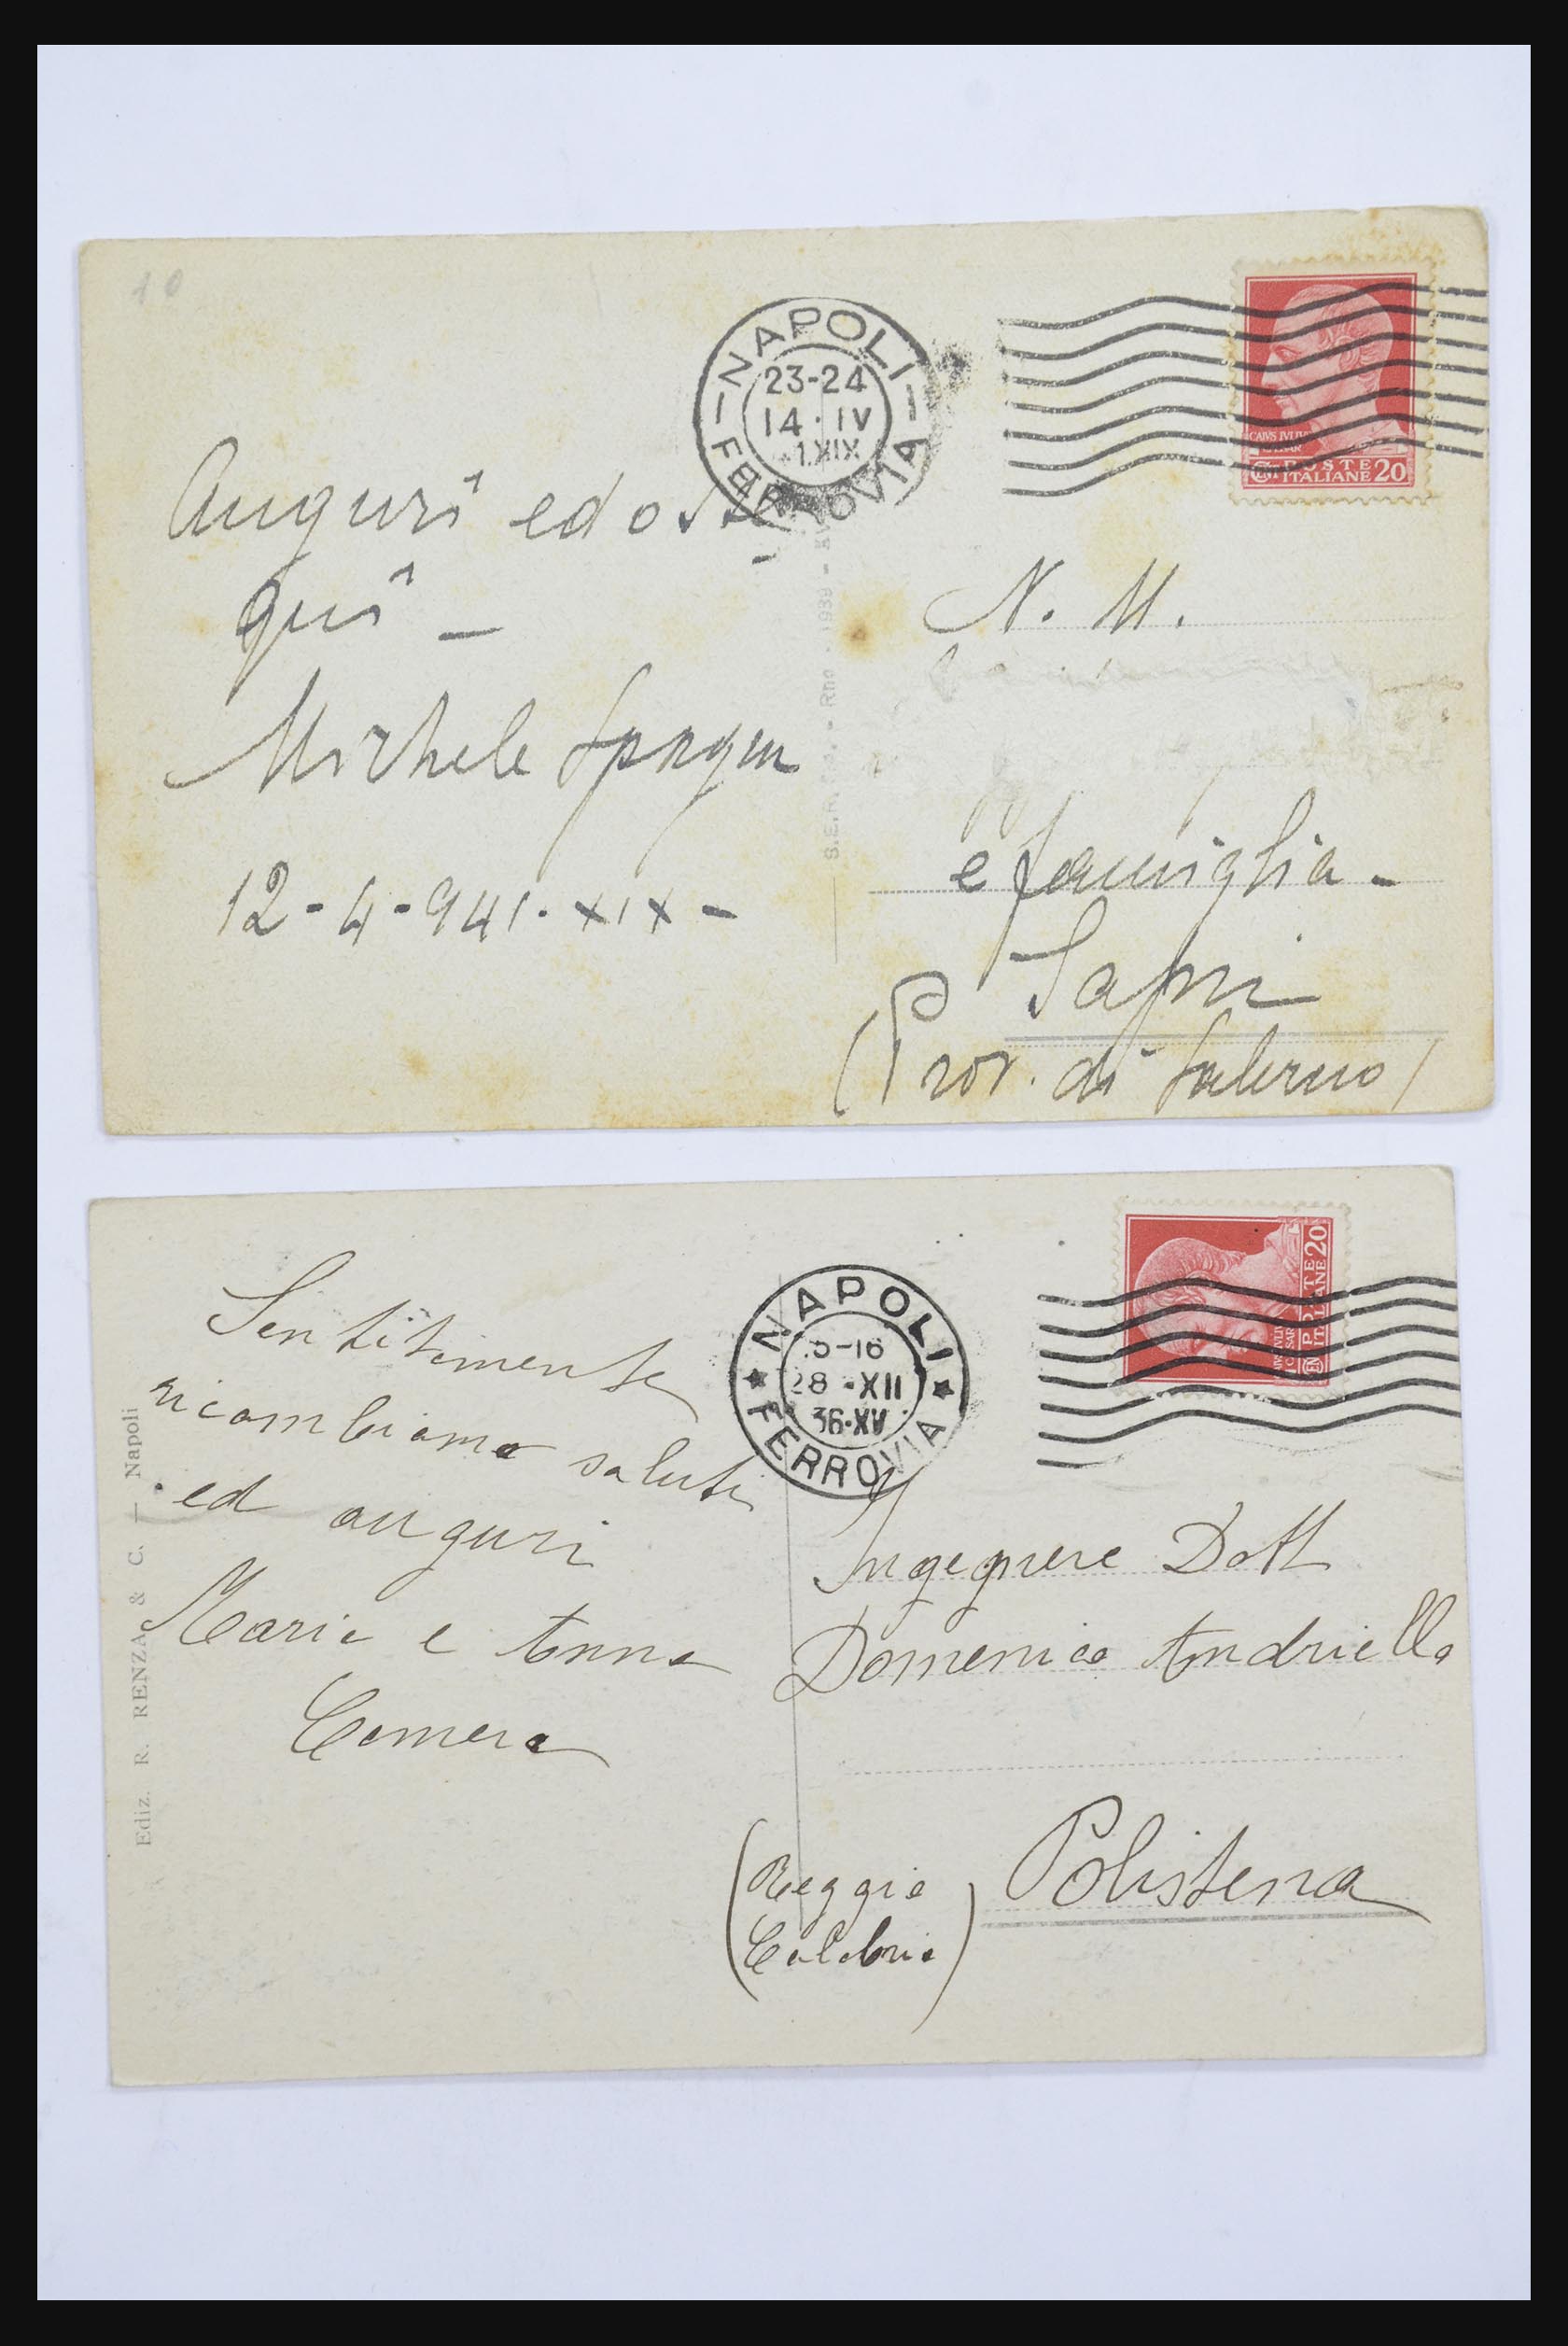 10
NAPOLI
23-24
14·IV
41.XIX
FERROVIA
CAIVS IVLIVS
CAESAR
POSTE
CENT ITALIANE 20
Auguri ed osse
qui -
Michele
12-4-941.XIX-
S.E.R. - Rno - 1939 -
N. H.
e famiglia -
Sapri
(Prov. di Salerno)
NAPOLI
5-16
28-XII
36·XV
FERROVIA
POSTE
CENT ITALIANE 20
Sentitimente
ricambiamo saluti
ed auguri
Maria e Anna
Camera
Ediz. R. RENZA & C. — Napoli
Ingegnere Dott
Domenico Andriello
Polistena
(Reggio
Calabria)